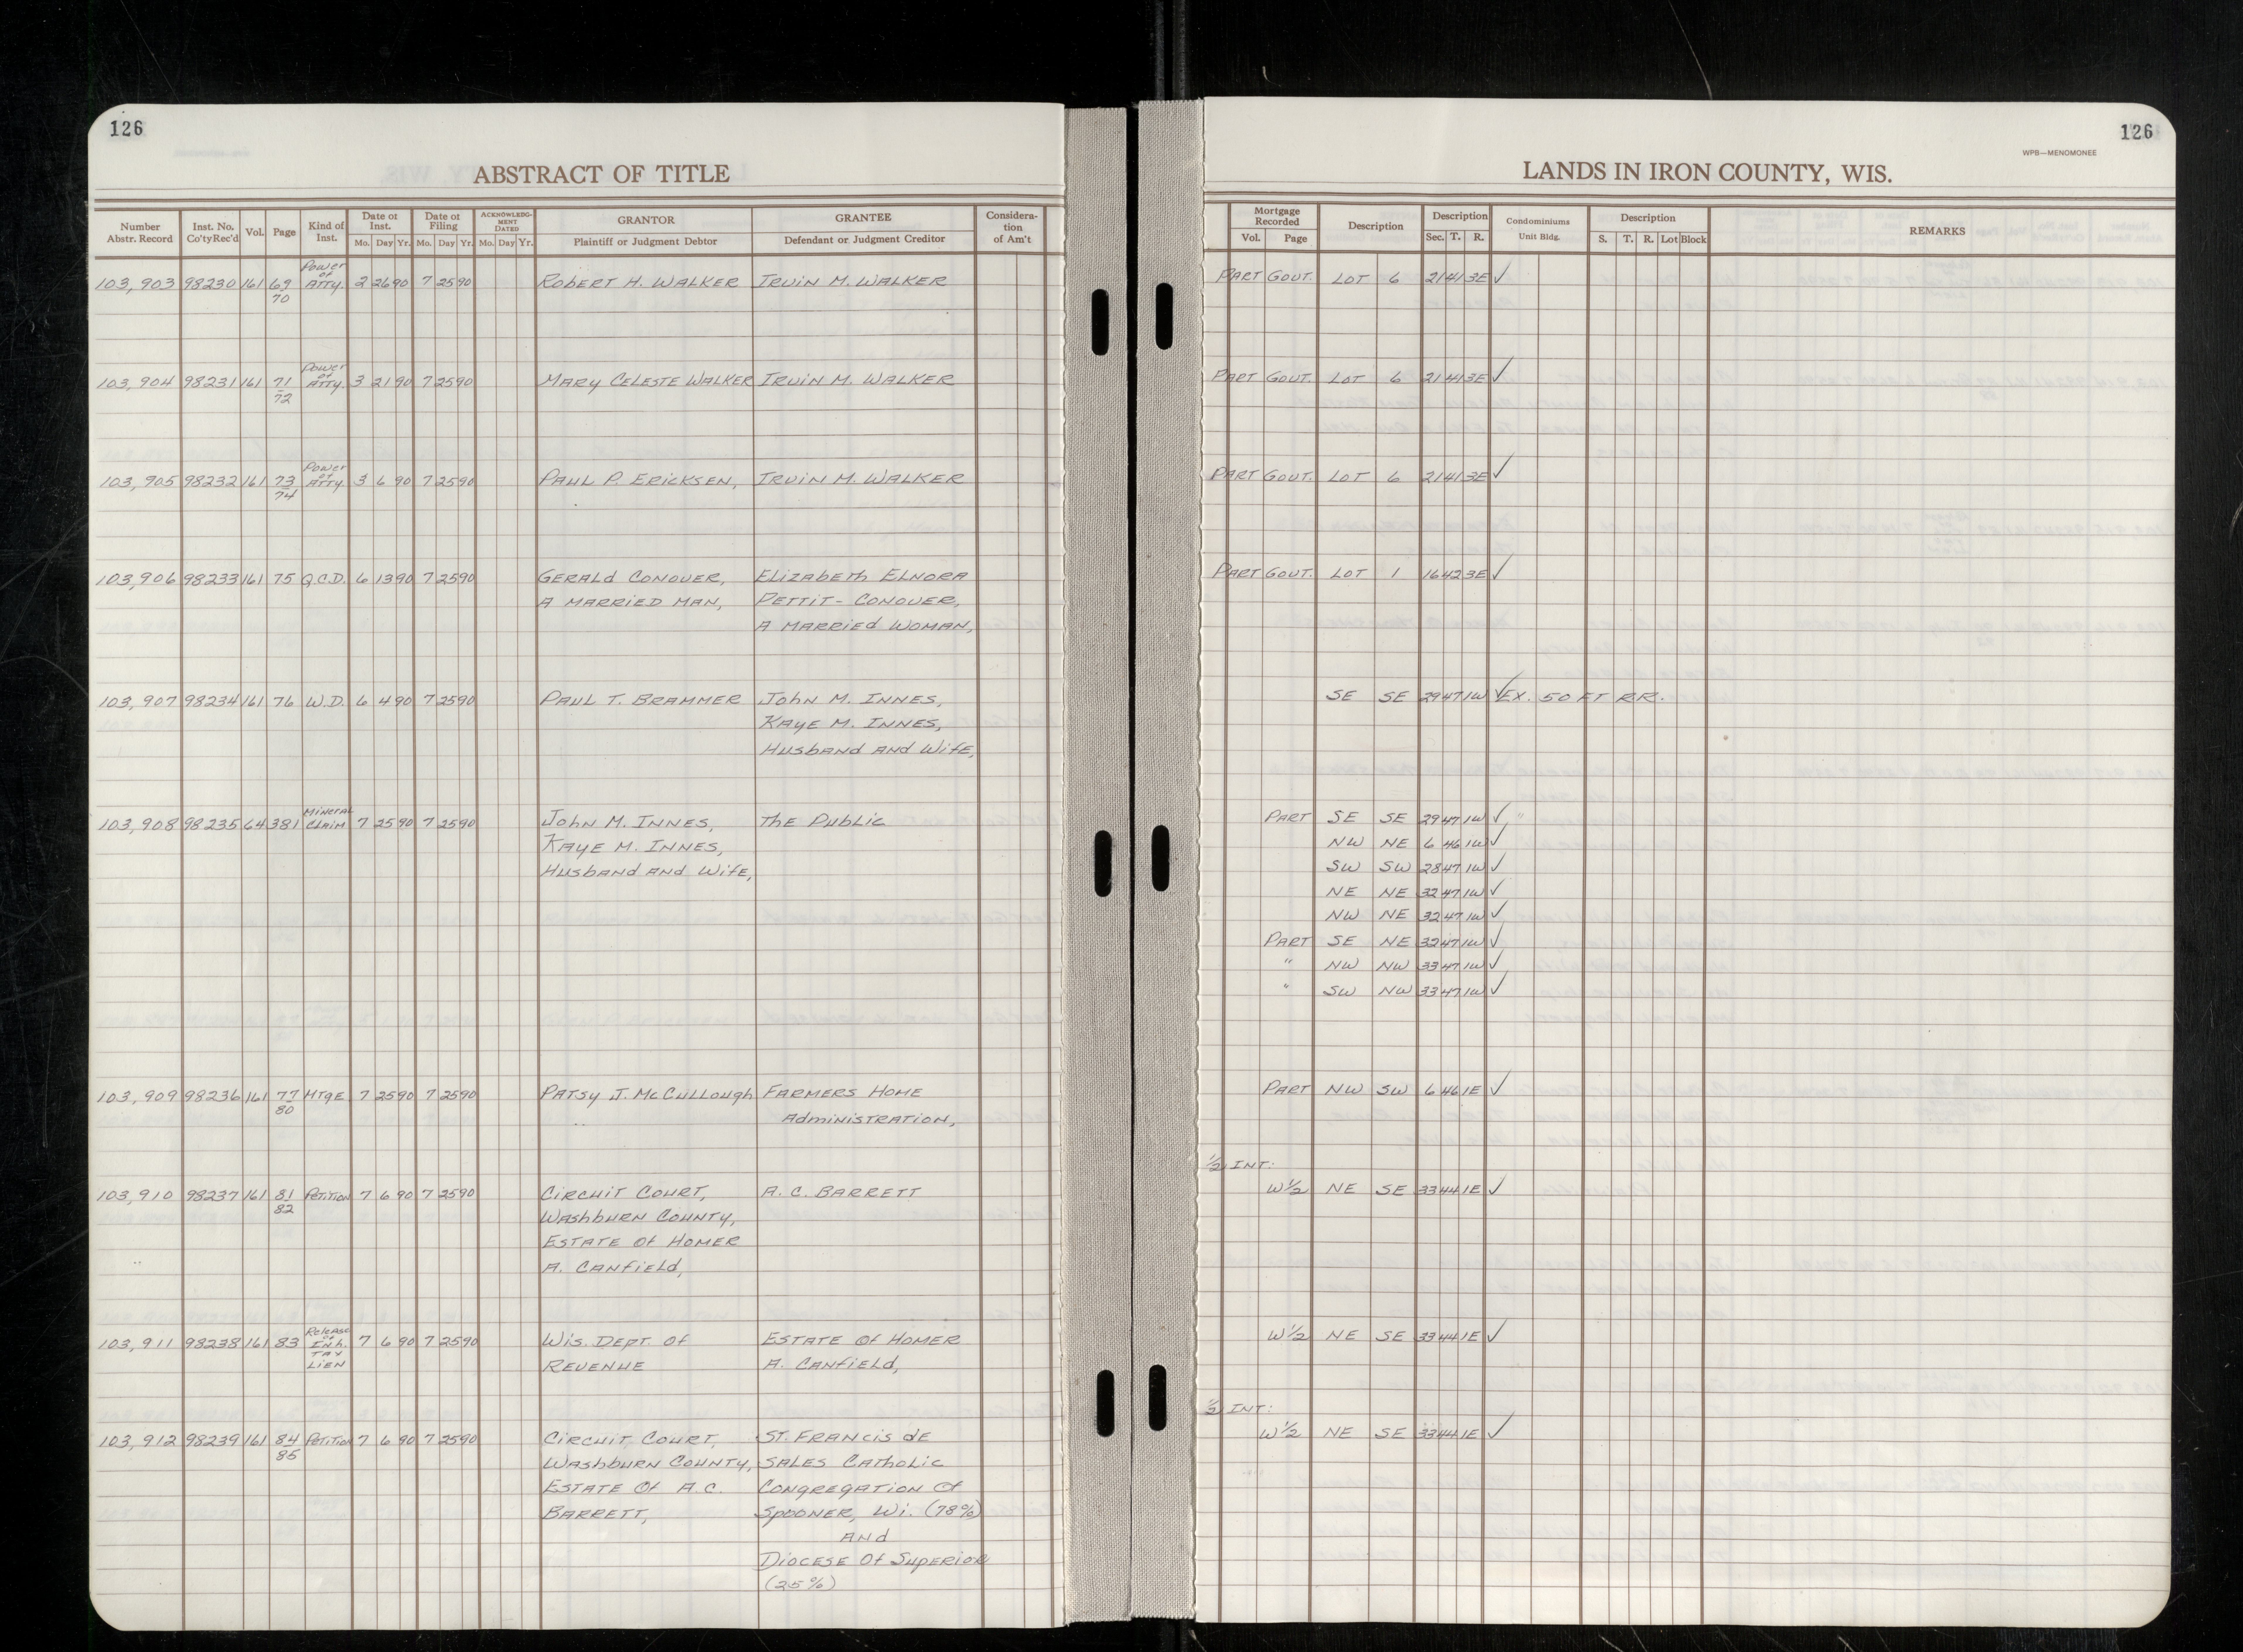 126
ABSTRACT OF TITLE
Number Abstr. Record | Inst. No. Co'ty Rec'd | Vol. | Page | Kind of Inst. | Date of Inst. Mo. Day Yr. | Date of Filing Mo. Day Yr. | ACKNOWLEDGMENT DATED Mo. Day Yr. | GRANTOR Plaintiff or Judgment Debtor | GRANTEE Defendant or Judgment Creditor | Consideration of Am't
103,903 98230 161 69/70 Power of Atty. 2 26 90 7 25 90 Robert H. Walker Irvin M. Walker
103,904 98231 161 71/72 Power of Atty. 3 21 90 7 25 90 Mary Celeste Walker Irvin M. Walker
103,905 98232 161 73/74 Power of Atty. 3 6 90 7 25 90 Paul P. Ericksen, Irvin M. Walker
103,906 98233 161 75 Q.C.D. 6 13 90 7 25 90 Gerald Conover, Elizabeth Elnora
A Married Man, Pettit-Conover,
A Married Woman,
103,907 98234 161 76 W.D. 6 4 90 7 25 90 Paul T. Brammer John M. Innes,
Kaye M. Innes,
Husband and Wife,
103,908 98235 64 381 Mineral Claim 7 25 90 7 25 90 John M. Innes, The Public
Kaye M. Innes,
Husband and Wife,
103,909 98236 161 77/80 Mtge 7 25 90 7 25 90 Patsy J. McCullough Farmers Home
Administration,
103,910 98237 161 81/82 Petition 7 6 90 7 25 90 Circuit Court, A. C. Barrett
Washburn County,
Estate of Homer
A. Canfield,
103,911 98238 161 83 Release of Inh. Tax Lien 7 6 90 7 25 90 Wis. Dept. of Estate of Homer
Revenue A. Canfield,
103,912 98239 161 84/85 Petition 7 6 90 7 25 90 Circuit Court, St. Francis de
Washburn County, Sales Catholic
Estate of A.C. Congregation of
Barrett, Spooner, Wi. (78%)
And
Diocese of Superior
(25%)
126
WPB—MENOMONEE
LANDS IN IRON COUNTY, WIS.
Mortgage Recorded Vol. Page | Description | Description Sec. T. R. | Condominiums Unit Bldg. | Description S. T. R. Lot Block | REMARKS
Part Govt. Lot 6 21 41 3E ✓
Part Govt. Lot 6 21 41 3E ✓
Part Govt. Lot 6 21 41 3E ✓
Part Govt. Lot 1 16 42 3E ✓
SE SE 29 47 1W ✓ Ex. 50 FT R.R.
Part SE SE 29 47 1W ✓ "
NW NE 6 46 1W ✓
SW SW 28 47 1W ✓
NE NE 32 47 1W ✓
NW NE 32 47 1W ✓
Part SE NE 32 47 1W ✓
" NW NW 33 47 1W ✓
" SW NW 33 47 1W ✓
Part NW SW 6 46 1E ✓
1/2 INT:
W 1/2 NE SE 33 44 1E ✓
W 1/2 NE SE 33 44 1E ✓
1/2 INT:
W 1/2 NE SE 33 44 1E ✓